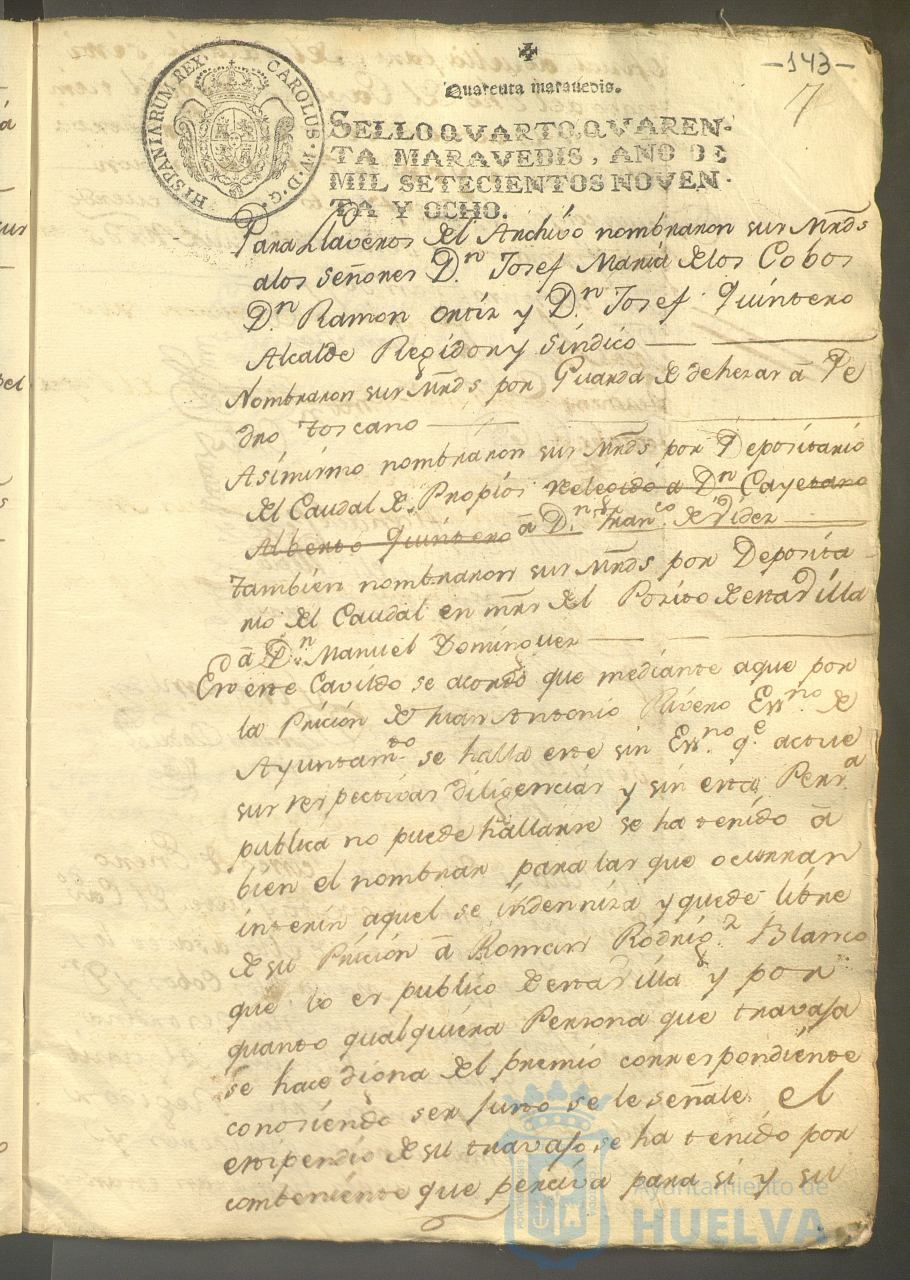 -143-
7
HISPANIARUM REX. CAROLUS IV D. G.
Quarenta maravedis.
SELLO QVARTO, QVAREN-
TA MARAVEDIS, AÑO DE
MIL SETECIENTOS NOVEN-
TA Y OCHO.
Para Llaveros del Archivo nombraron sus Mrds
alos Señores Dn Josef Maria delos Cobos
Dn Ramon Ortiz y Dn Josef Quintero
Alcalde Regidor y Síndico
Nombraron sus Mrds por Guarda de dehezas â Pe
dro Toscano
Asimismo nombraron sus Mrds por Depositario
del Caudal de Propios releegido â Dn Cayetano
Alberto Quintero â Dn Franco de Videz
tambien nombraron sus Mrds por Deposita
rio del Caudal en mrs del Posito de esta Villa
â Dn Manuel Dominguez
En este Cavildo se acordó que mediante aque por
la Pricion de Juan Antonio Rivero Essno de
Ayuntamto se halla este sin Essno qe actue
sus respectivas diligencias y sin esta Persa
publica no puede hallarse se ha tenido â
bien el nombrar para las que ocurran
interin aquel se indenniza y quede libre
de su Pricion â Roman Rodrigz Blanco
que lo es publico de esta Villa y por
quanto qualquiera Persona que travaja
se hace diона del premio correspondiente
conosiendo ser justo se le señale el
estipendio de su travajo, se ha tenido por
combeniente que perciva para si y su
Ayuntamiento de
HUELVA